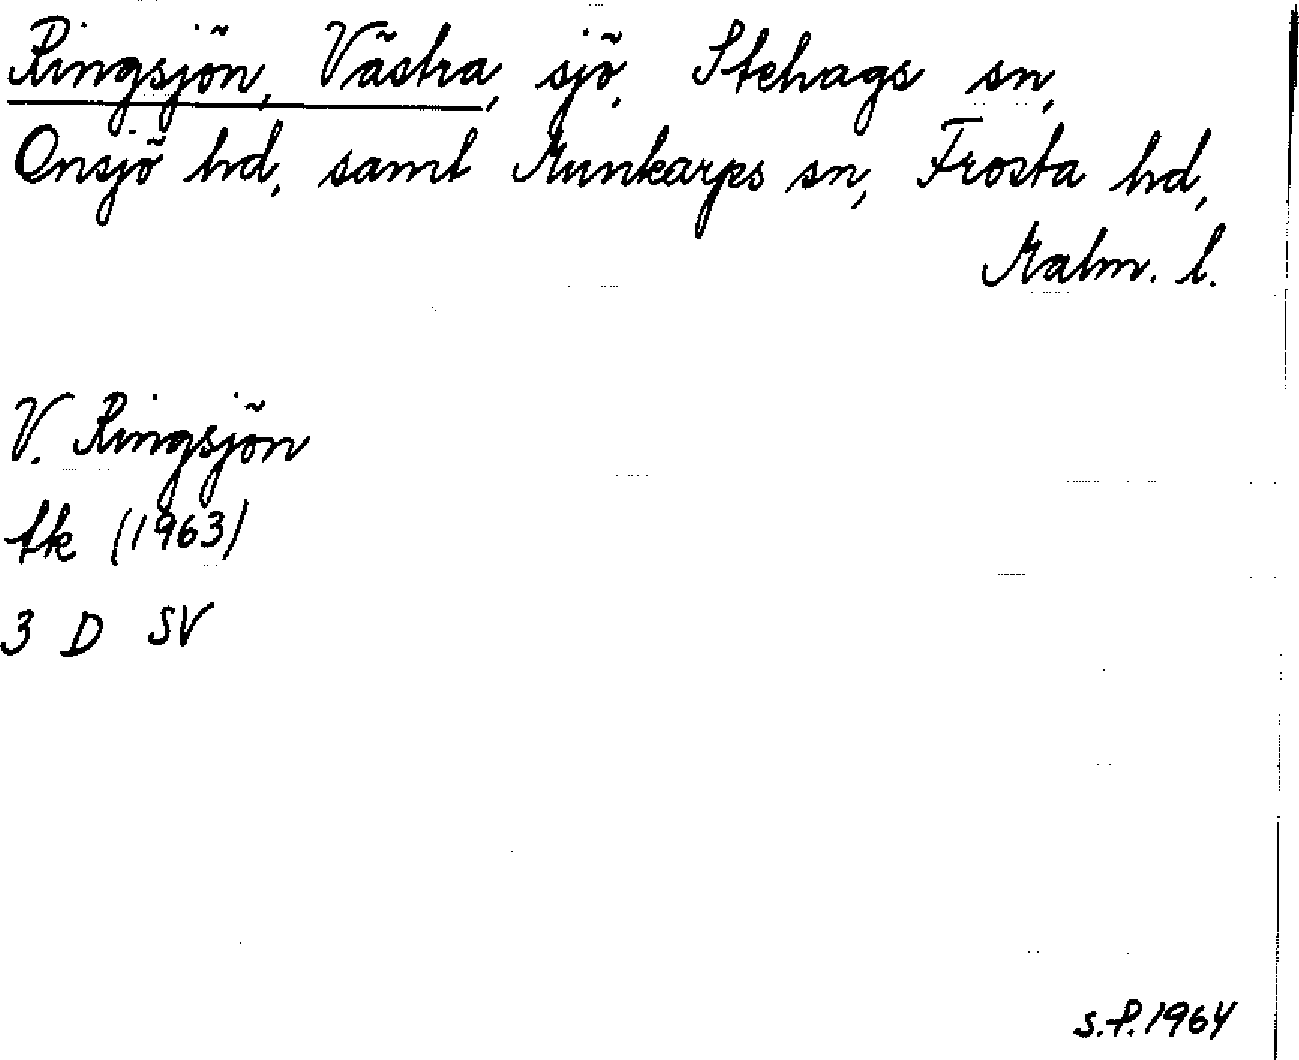 Ringsjön, Västra, sjö, Stehags sn,
Onsjö hd, samt Munkarps sn, Frosta hd,
Malm. l.
V. Ringsjön
tk (1963)
3 D SV
s.f. 1964